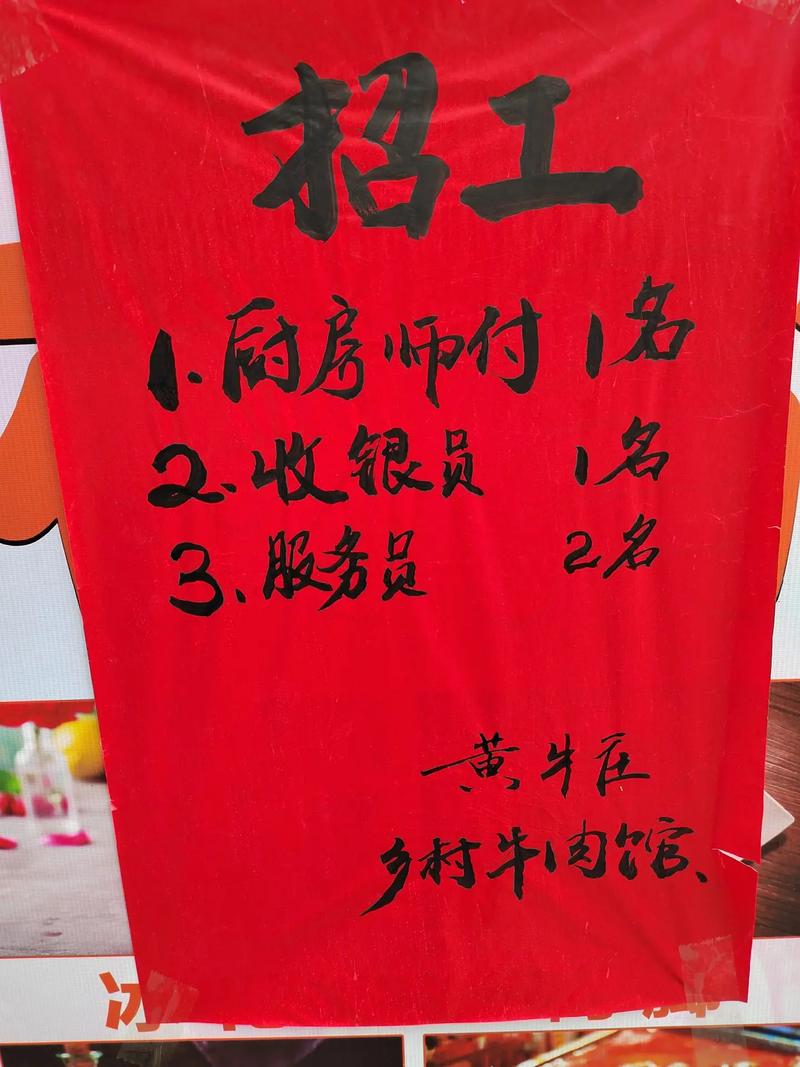 招工
1.厨房师付 1名
2.收银员 1名
3.服务员 2名
黄牛庄
乡村牛肉馆、